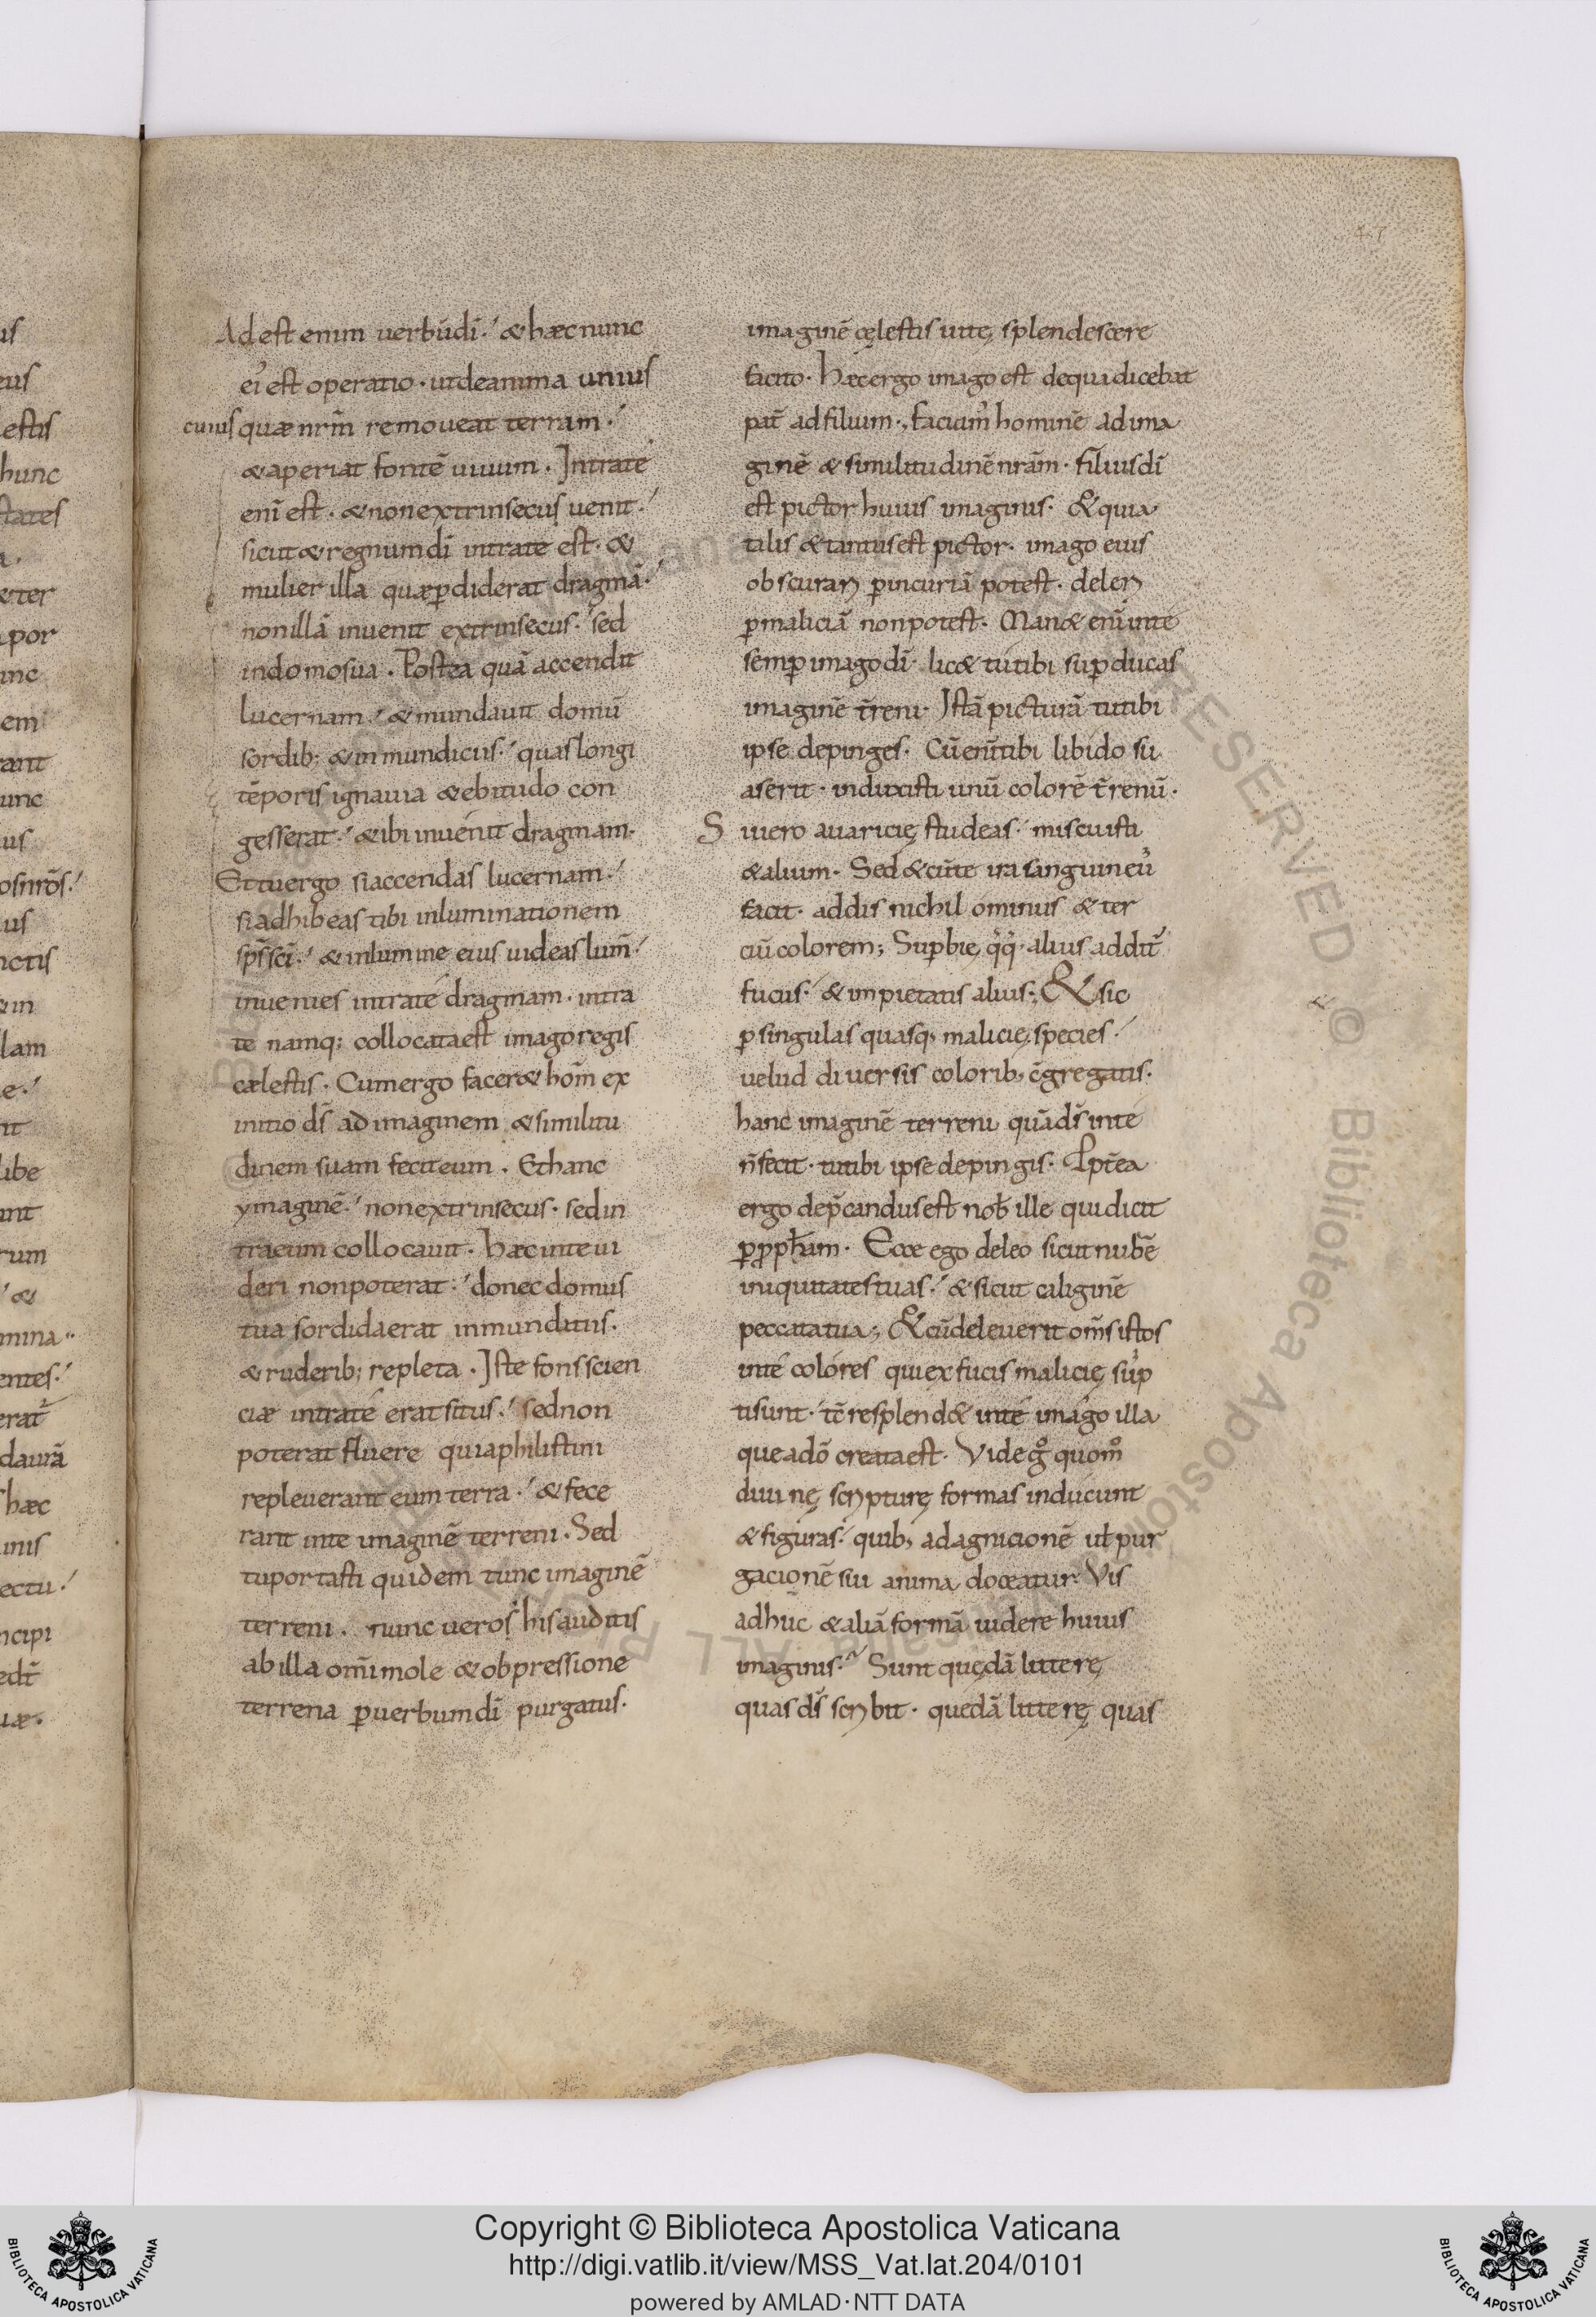 47
us
eius
lestis
hunc
states
a.
eter
por
unc
em
rant
unc
us
osnrōs.
us
nctis
&in
lam
e.
nt
libe
ant
rum
&
mina
entes.
erat
daurā
hæc
inis
ectu.
ncipi
edt̄
uæ.
Adest enim uerbū dī. & hæc nunc
ei' est operatio. ut de anima unius
cuius quæ nr̄m remoueat terram.
& aperiat fontē uiuum. Intra te
enī est. & non extrinsecus uenit.
sicut & regnum dī intra te est. &
mulier illa quæ p̄diderat dragmā.
non illā inuenit extrinsecus. sed
in domo sua. Postea quā accendit
lucernam. & mundauit domū
sordib; & inmundicus. quas longi
tēporis ignauia & ebitudo con
gesserat. & ibi inuenit dragmam.
Et tu ergo si accendas lucernam.
si adhibeas tibi inluminationem
sp̄s sc̄i. & in lumine eius uideas lum̄.
inuenies intra te dragmam. intra
te namq; collocata est imago regis
cælestis. Cum ergo facer& hom̄ ex
initio ds̄ ad imaginem & similitu
dinem suam fecit eum. Et hanc
ymaginē. non extrinsecus. sed in
tra eum collocauit. Hæc in te ui
deri non poterat. donec domus
tua sordida erat inmunditiis.
& ruderib; repleta. Iste fons scien
ciæ intra te erat situs. sed non
poterat fluere quia philistini
repleuerant eum terra. & fece
rant in te imaginē terreni. Sed
tu portasti quidem tunc imaginē
terreni. nunc uero his auditis
ab illa om̄i mole & obpressione
terrena p̱ uerbum dī purgatus.
imaginē cęlestis uitę splendescere
facito. Hæc ergo imago est de qua dicebat
pat̄ ad filium. faciam' hominē ad ima
ginē & similitudinē nrām. filius dī
est pictor huius imaginis. & quia
talis & tantus est pictor. imago eius
obscurari p̱ incuriā potest. deleri
p̱ maliciā non potest. Man& enī in te
semp̱ imago dī. lic& tu tibi sup̱ducas
imaginē t̄reni. Istā picturā tu tibi
ipse depinges. Cū enī tibi libido su
aserit. induxisti unū colorē t̄renū.
Si uero auaricię studeas. miscuisti
& alium. Sed & cū te ira sanguineū
facit. addis nichilominus & ter
ciū colorem; Sup̱bię q̊q̊. alius addit̄
fucus. & impietatis alius; & sic
p̱ singulas quasq; malicię species.
uelud diuersis colorib; c̄gregatis.
hanc imaginē terreni quā ds̄ in te
n̄ fecit. tu tibi ipse depingis. Ppt̄ea
ergo dep̄candus est nob̄ ille qui dicit
p̱ pph̄am. Ecce ego deleo sicut nubē
iniquitates tuas. & sicut caliginē
peccata tua; & cū deleuerit om̄s istos
in te colores qui ex fucis malicię sūp
ti sunt. tc̄ resplend& in te imago illa
que a dō creata est. Vide g̊ quom̊
diuinę scripturę formas inducunt
& figuras. quib; ad agnicionē ul̄ pur
gacionē sui anima doceatur. Vis
adhuc & aliā formā uidere huius
imaginis. Sunt quędā litterę
quas ds̄ scribit. quedā litterę quas
Copyright © Biblioteca Apostolica Vaticana
http://digi.vatlib.it/view/MSS_Vat.lat.204/0101
powered by AMLAD·NTT DATA
BIBLIOTECA APOSTOLICA VATICANA
BIBLIOTECA APOSTOLICA VATICANA